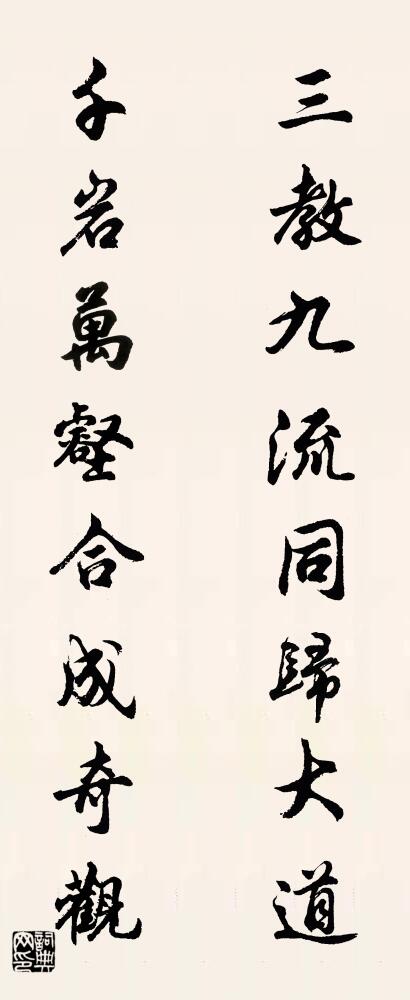 三教九流同歸大道
千岩萬壑合成奇觀
詞典网印